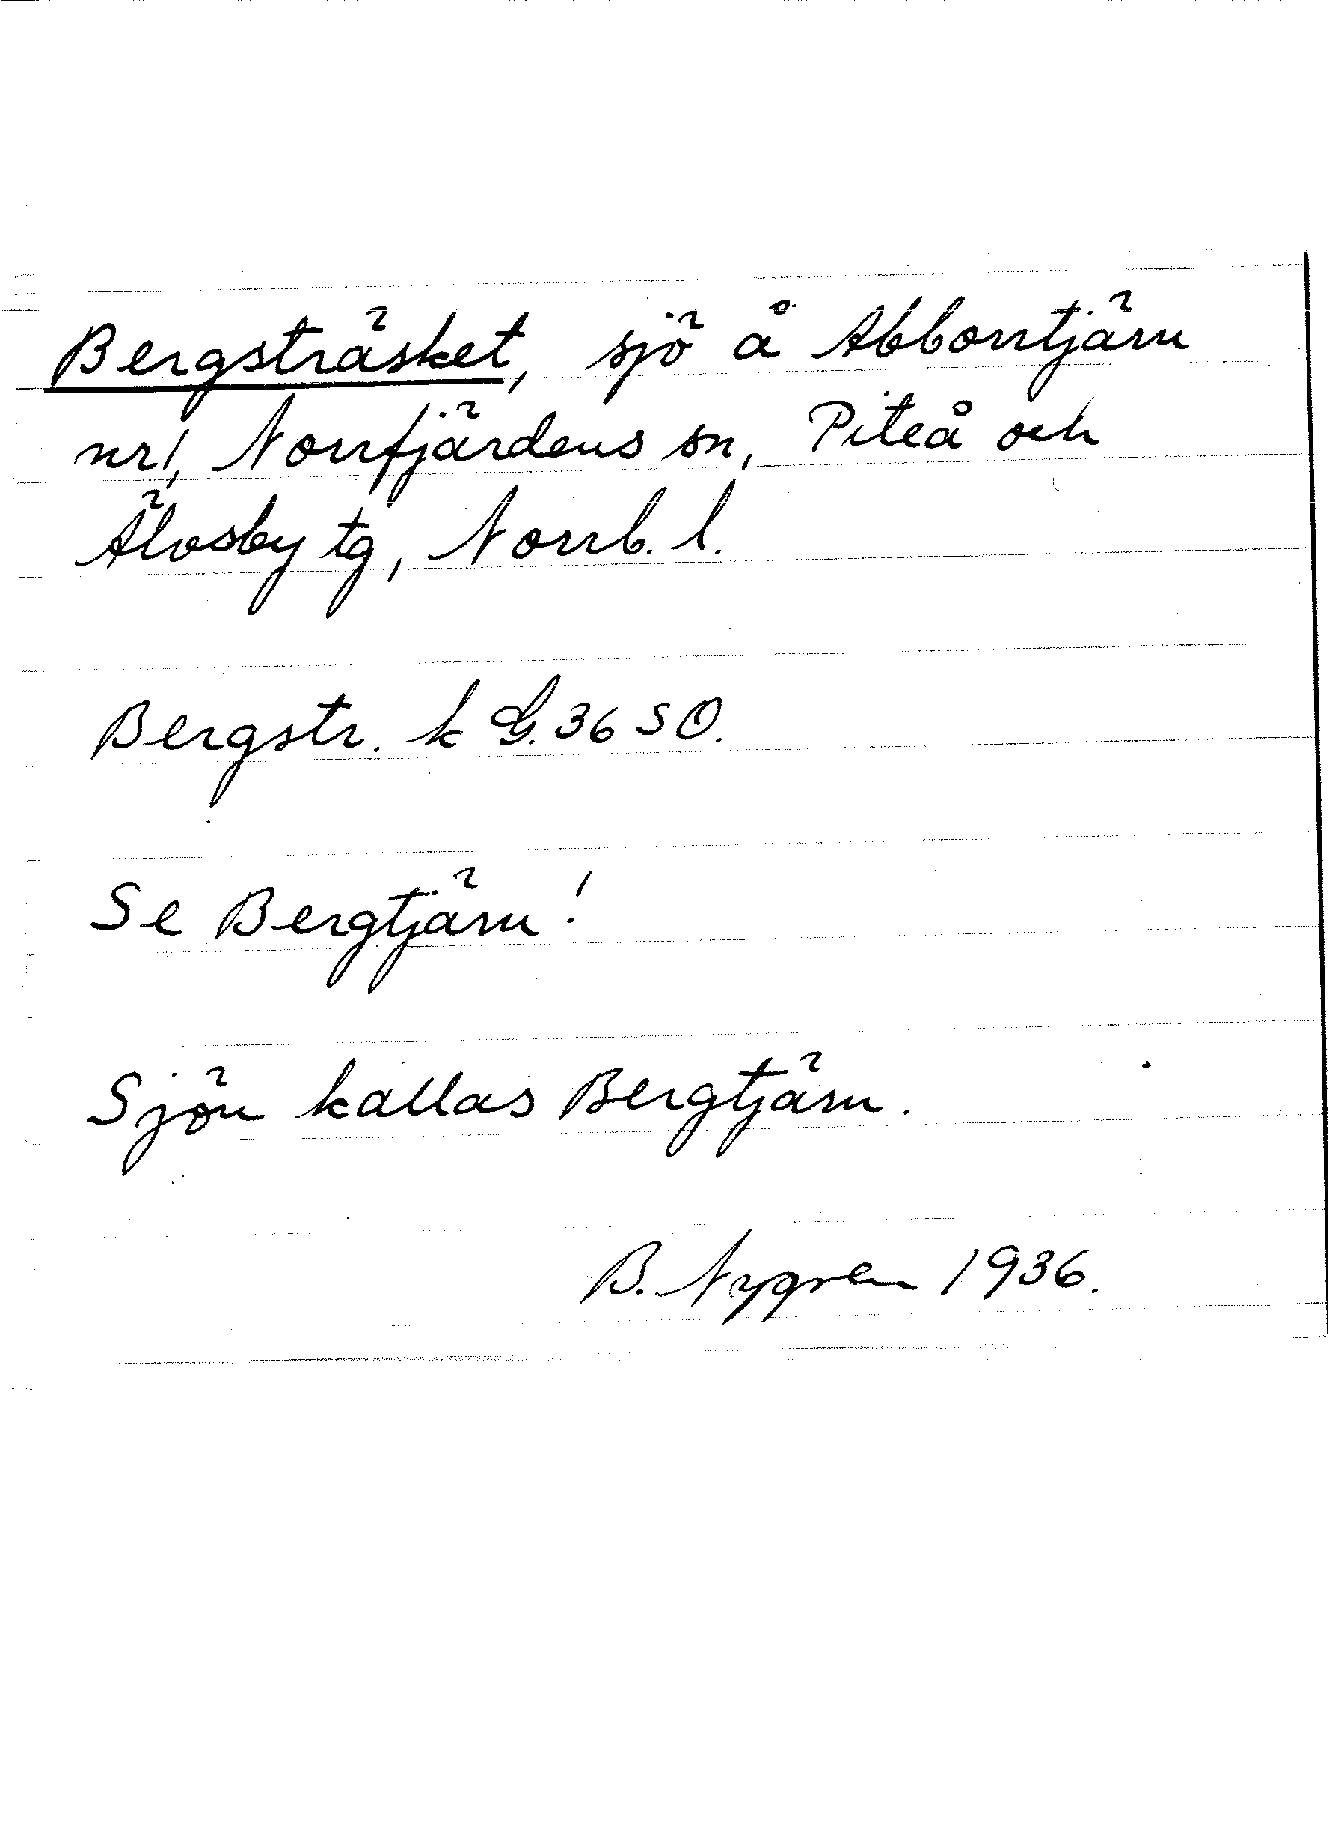 Bergsträsket, sjö å Abborrtjärn
nr 1, Norrfjärdens sn, Piteå och
Älvsby tg, Norrb. l.
Bergstr. k G. 36 SO.
Se Bergtjärn!
Sjön kallas Bergtjärn.
B. Nygren 1936.